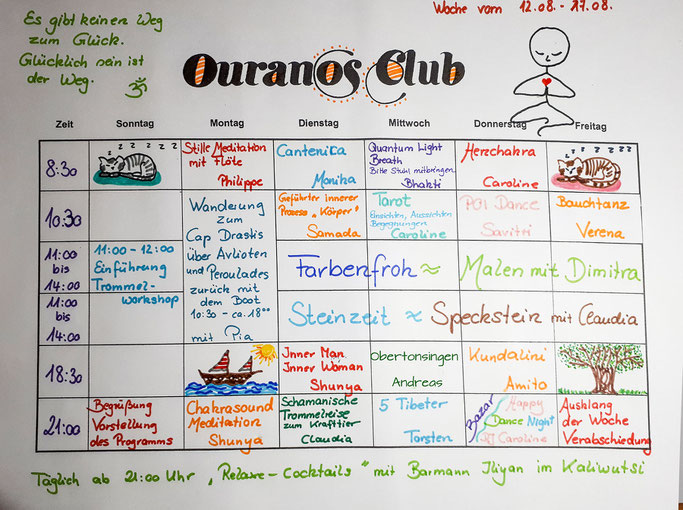 Es gibt keinen Weg
zum Glück.
Glücklich sein ist
der Weg. ॐ
Woche vom 12.08. - 17.08.
Ouranos Club
Zeit Sonntag Montag Dienstag Mittwoch Donnerstag Freitag
8:30
z z z z z
Stille Meditation
mit Flöte
Philippe
Cantenica
Monika
Quantum Light
Breath
Bitte Stuhl mitbringen
Bhakti
Herzchakra
Caroline
z z z z z z z
10:30
Wanderung
zum
Cap Drastis
über Avlioten
und Peroulades
zurück mit
dem Boot
10:30 - ca. 18°°
mit Pia
Geführter innerer
Prozess „Körper"
Samada
Tarot
Einsichten, Aussichten
Begegnungen
Caroline
POI Dance
Savitri
Bauchtanz
Verena
11:00
bis
14:00
11:00 - 12:00
Einführung
Trommel-
workshop
Farbenfroh ≈ Malen mit Dimitra
11:00
bis
14:00
Steinzeit ≈ Speckstein mit Claudia
18:30
Inner Man
Inner Woman
Shunya
Obertonsingen
Andreas
Kundalini
Amito
21:00
Begrüßung
Vorstellung
des Programms
Chakrasound
Meditation
Shunya
Schamanische
Trommelreise
zum Krafttier
Claudia
5 Tibeter
Torsten
Bazar
Happy
Dance Night
DJ Caroline
Ausklang
der Woche
Verabschiedung
Täglich ab 21:00 Uhr „Relaxe-Cocktails" mit Barmann Iliyan im Kaliwutsi